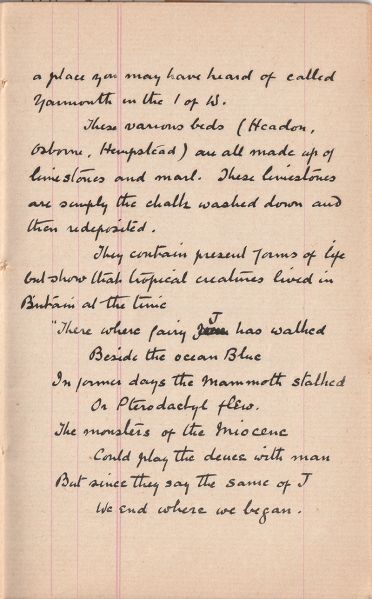 a place you may have heard of called
Yarmouth in the I of W.
These various beds (Headon,
Osborne, Hempstead) are all made up of
limestones and marl. These limestones
are simply the chalk washed down and
then redeposited.
They contain present forms of life
but show that tropical creatures lived in
Britain at the time
"There where fairy J has walked
Beside the ocean Blue
In former days the Mammoth stalked
Or Pterodactyl flew.
The monsters of the Miocene
Could play the deuce with man
But since they say the same of J
We end where we began.